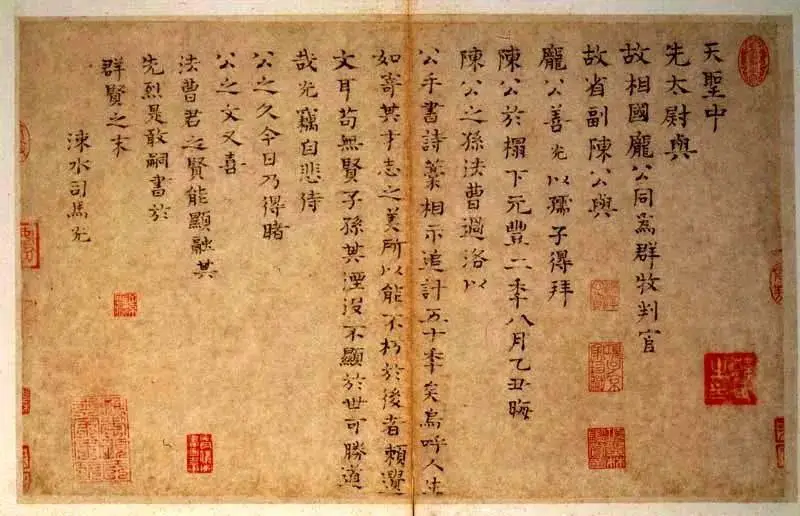 天聖中
先太尉與
故相國龐公同爲群牧判官
故省副陳公與
龐公善光以孺子得拜
陳公於榻下元豐二年八月乙丑晦
陳公之孫法曹過洛以
公手書詩藁相示追計五十年矣烏呼人生
如寄其才志之美所以能不朽於後者賴遺
文耳苟無賢子孫其湮沒不顯於世可勝道
哉光竊自悲待
公之久今日乃得睹
公之文又喜
法曹君之賢能顯融其
先烈是敢嗣書於
群賢之末
涑水司馬光